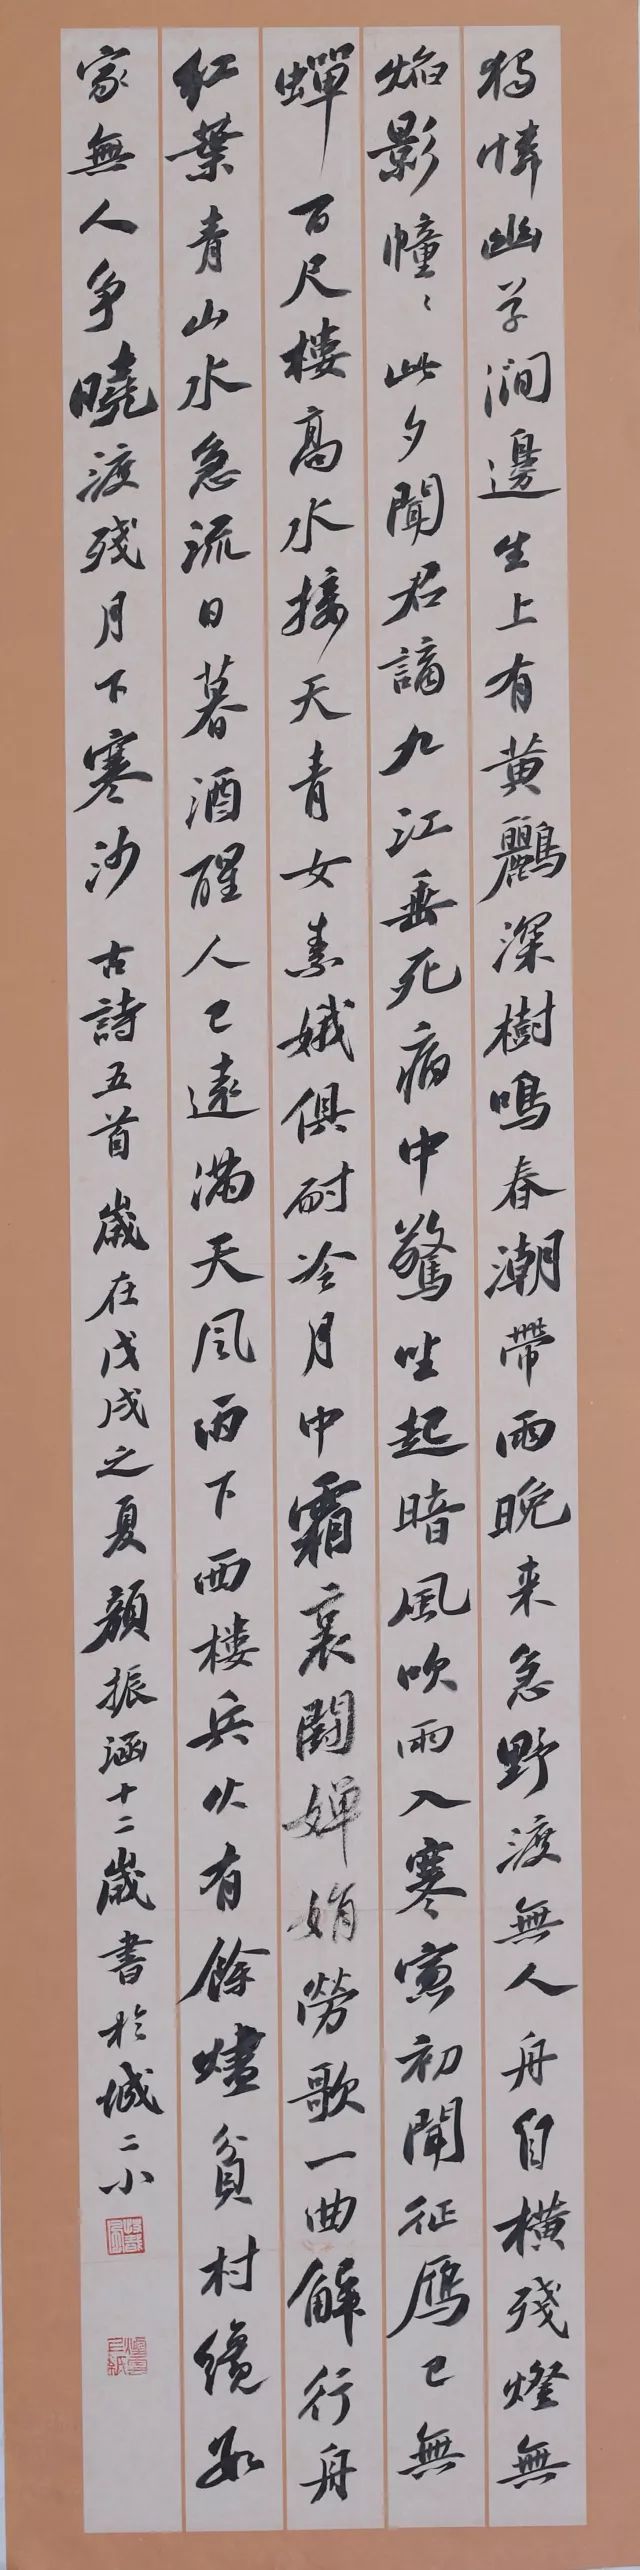 獨憐幽草澗邊生上有黄鸝深樹鳴春潮帶雨晚来急野渡無人舟自横殘燈無
焰影幢〻此夕聞君謫九江垂死病中驚坐起暗風吹雨入寒窗初聞征雁已無
蟬百尺樓高水接天青女素娥俱耐冷月中霜裏鬪嬋娟勞歌一曲解行舟
紅葉青山水急流日暮酒醒人已遠滿天風雨下西樓兵火有餘燼貧村纔數
家無人争曉渡殘月下寒沙 古詩五首 歲在戊戌之夏 顏振涵十二歲書於城二小